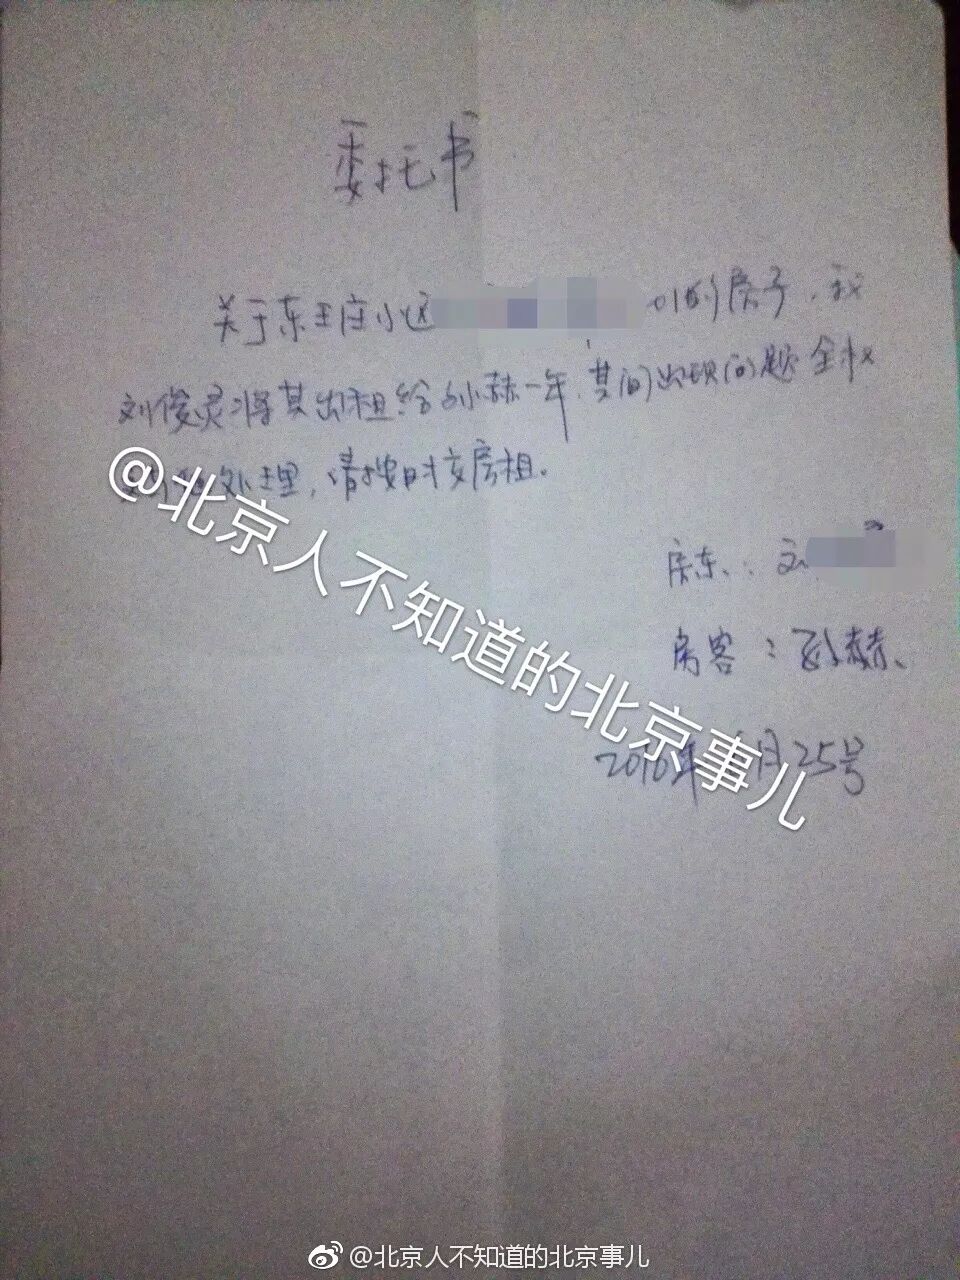 委托书
关于东王庄小区 01的房子，我
刘俊灵将其出租给孙赫一年，其间出现问题全权
处理，请按时交房租。
房东：刘
房客：孙赫
2016年 月25号
@北京人不知道的北京事儿
@北京人不知道的北京事儿